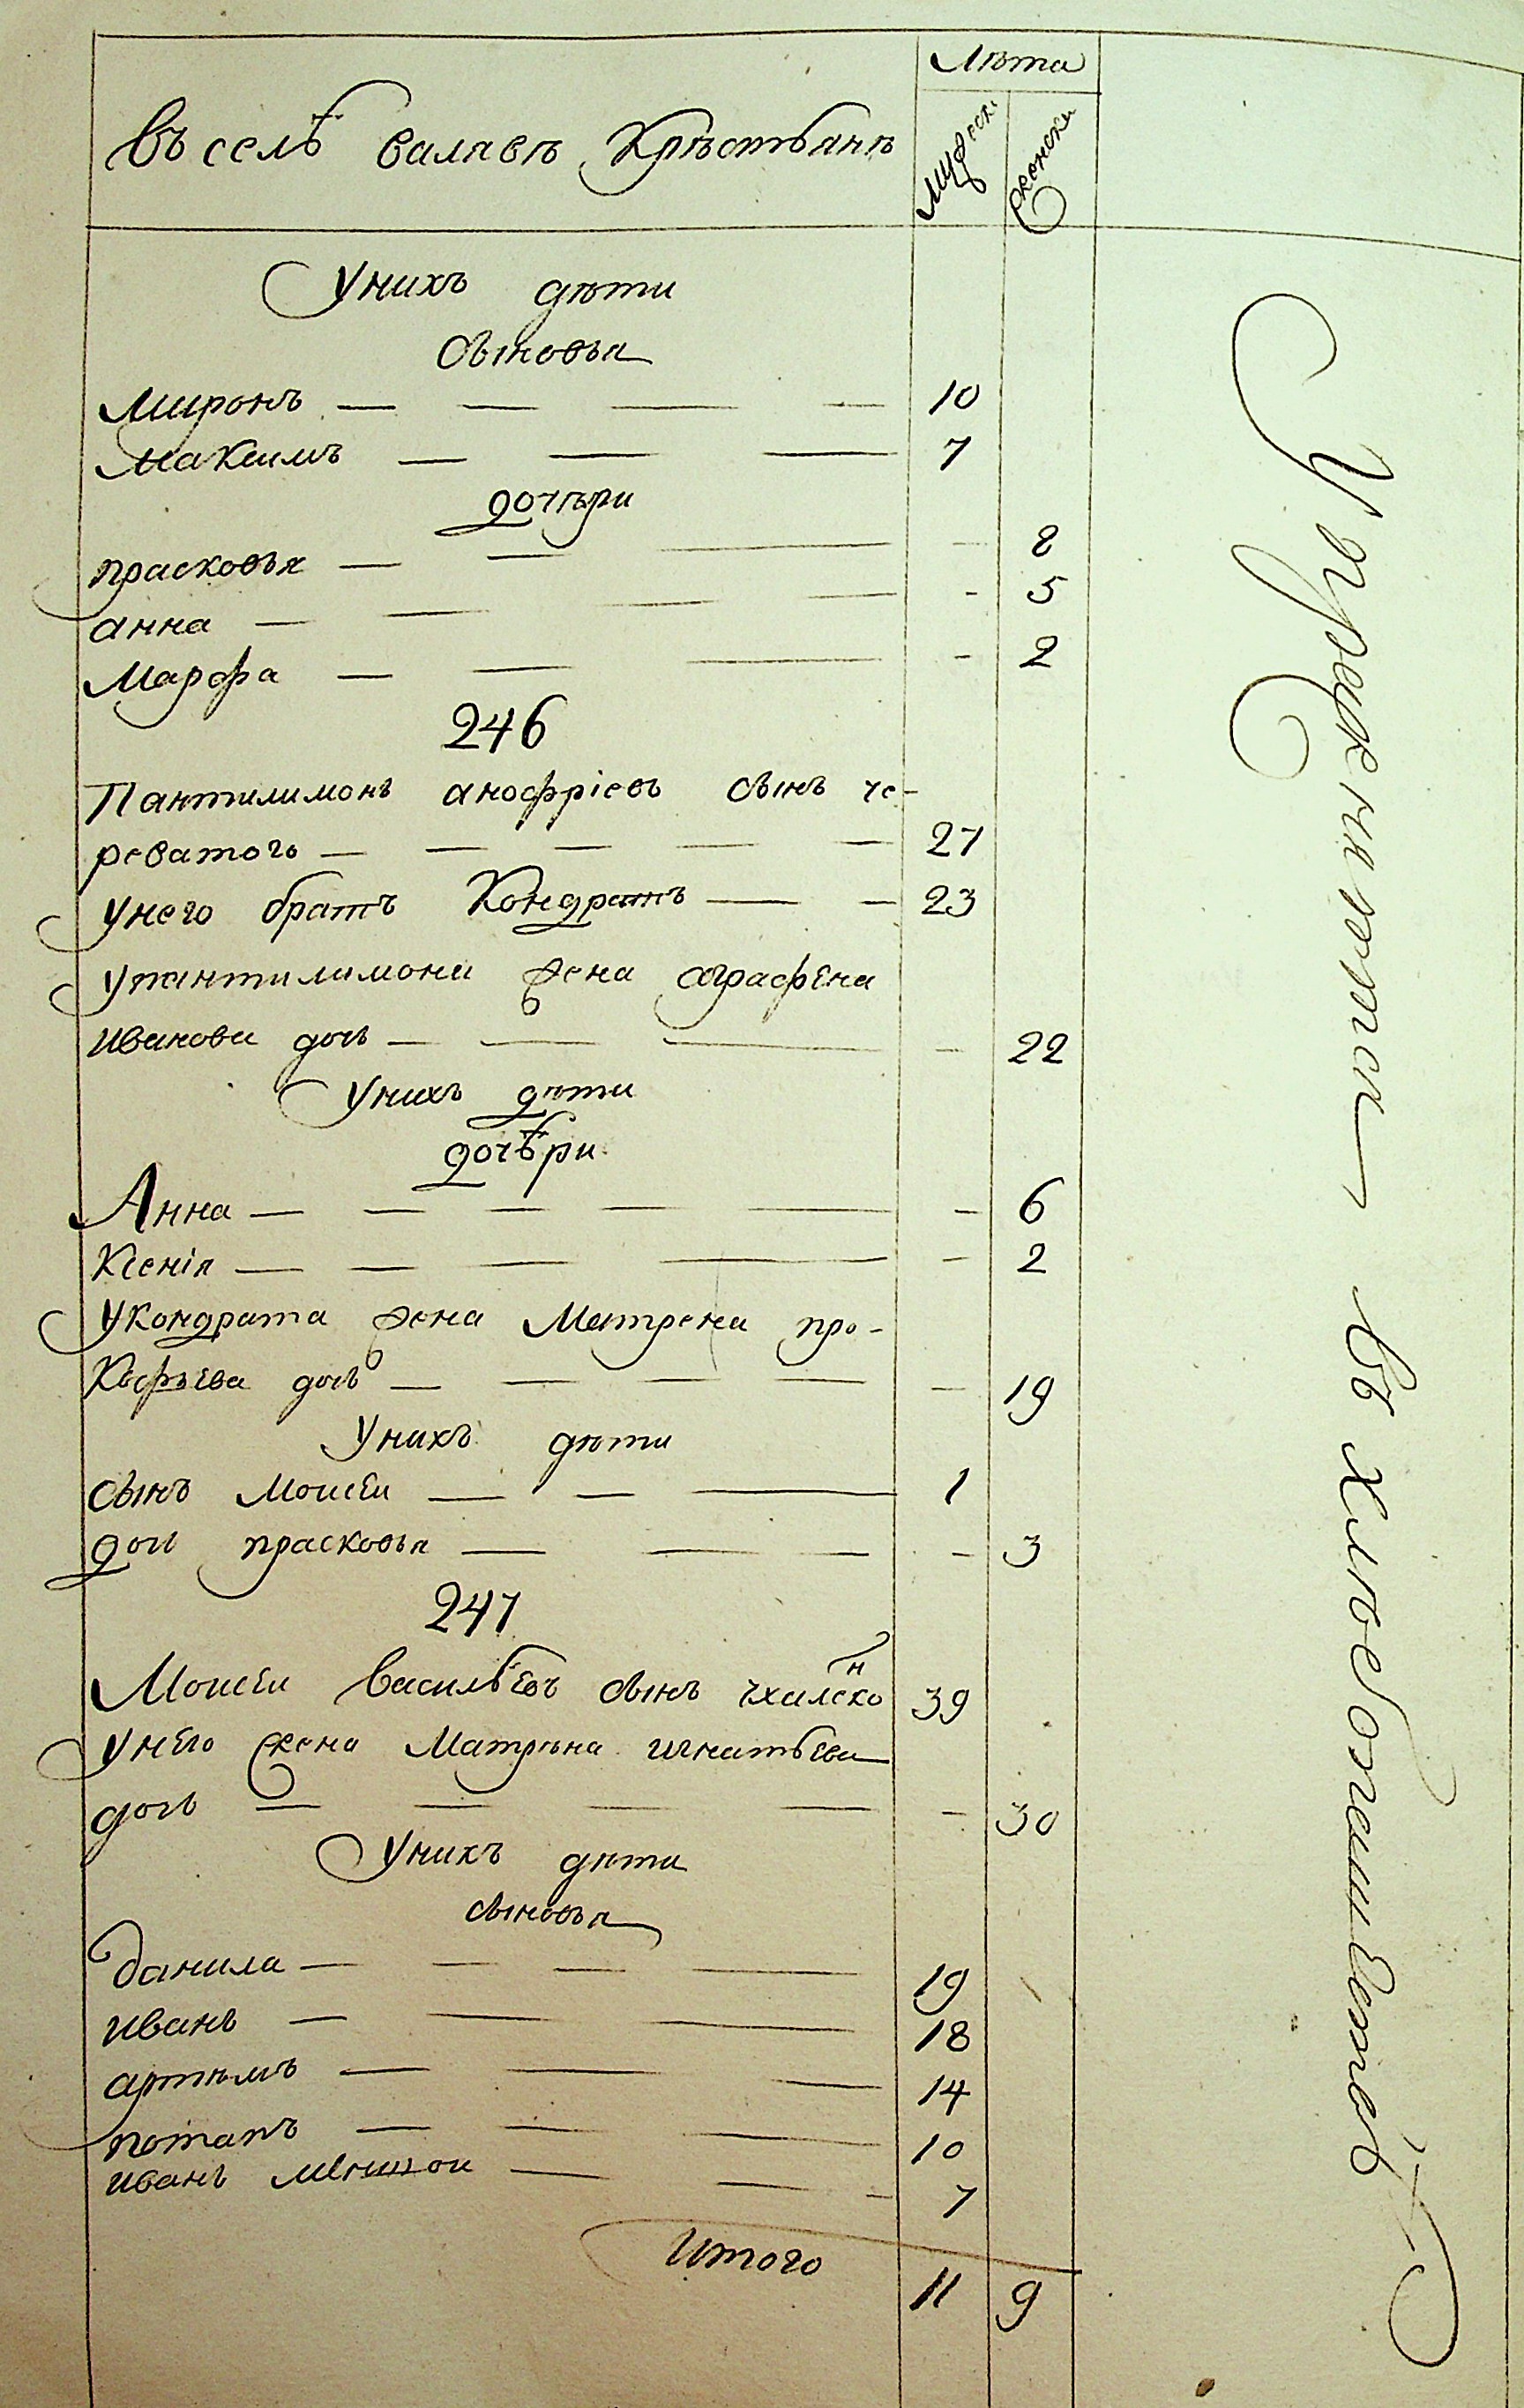 Лѣта
Въ селѣ валавѣ Крѣстьянѣ
мужеск
женска
Унихъ дѣти
сыновья
Миронъ — — — — 10
Максимъ — — — 7
дочѣри
прасковья — — — - 8
анна — — — — - 5
Марфа — — — - 2
246
Пантилимонъ анофріевъ сынъ че-
реватого — — — — — 27
унего братъ Кондратъ — — 23
упантилимона жена аграфена
иванова дочь — — — - 22
Унихъ дѣти
дочѣри
Анна — — — — — - 6
Ксенія — — — — - 2
укондрата жена Матрена про-
кофьева дочь — — — — - 19
Унихъ дѣти
сынъ Моисеи — — — 1
дочь прасковья — — — - 3
247
Моисеи Васильевъ сынъ 39
унего жена Матрѣна игнатьева
дочь — — — — - 30
Унихъ дѣти
сыновья
данила — — — — 19
иванъ — — — 18
артѣмъ — — — 14
потапъ — — — 10
иванъ меншои — — - 7
Итого 11 9
Упражняютца въ хлебопашестве